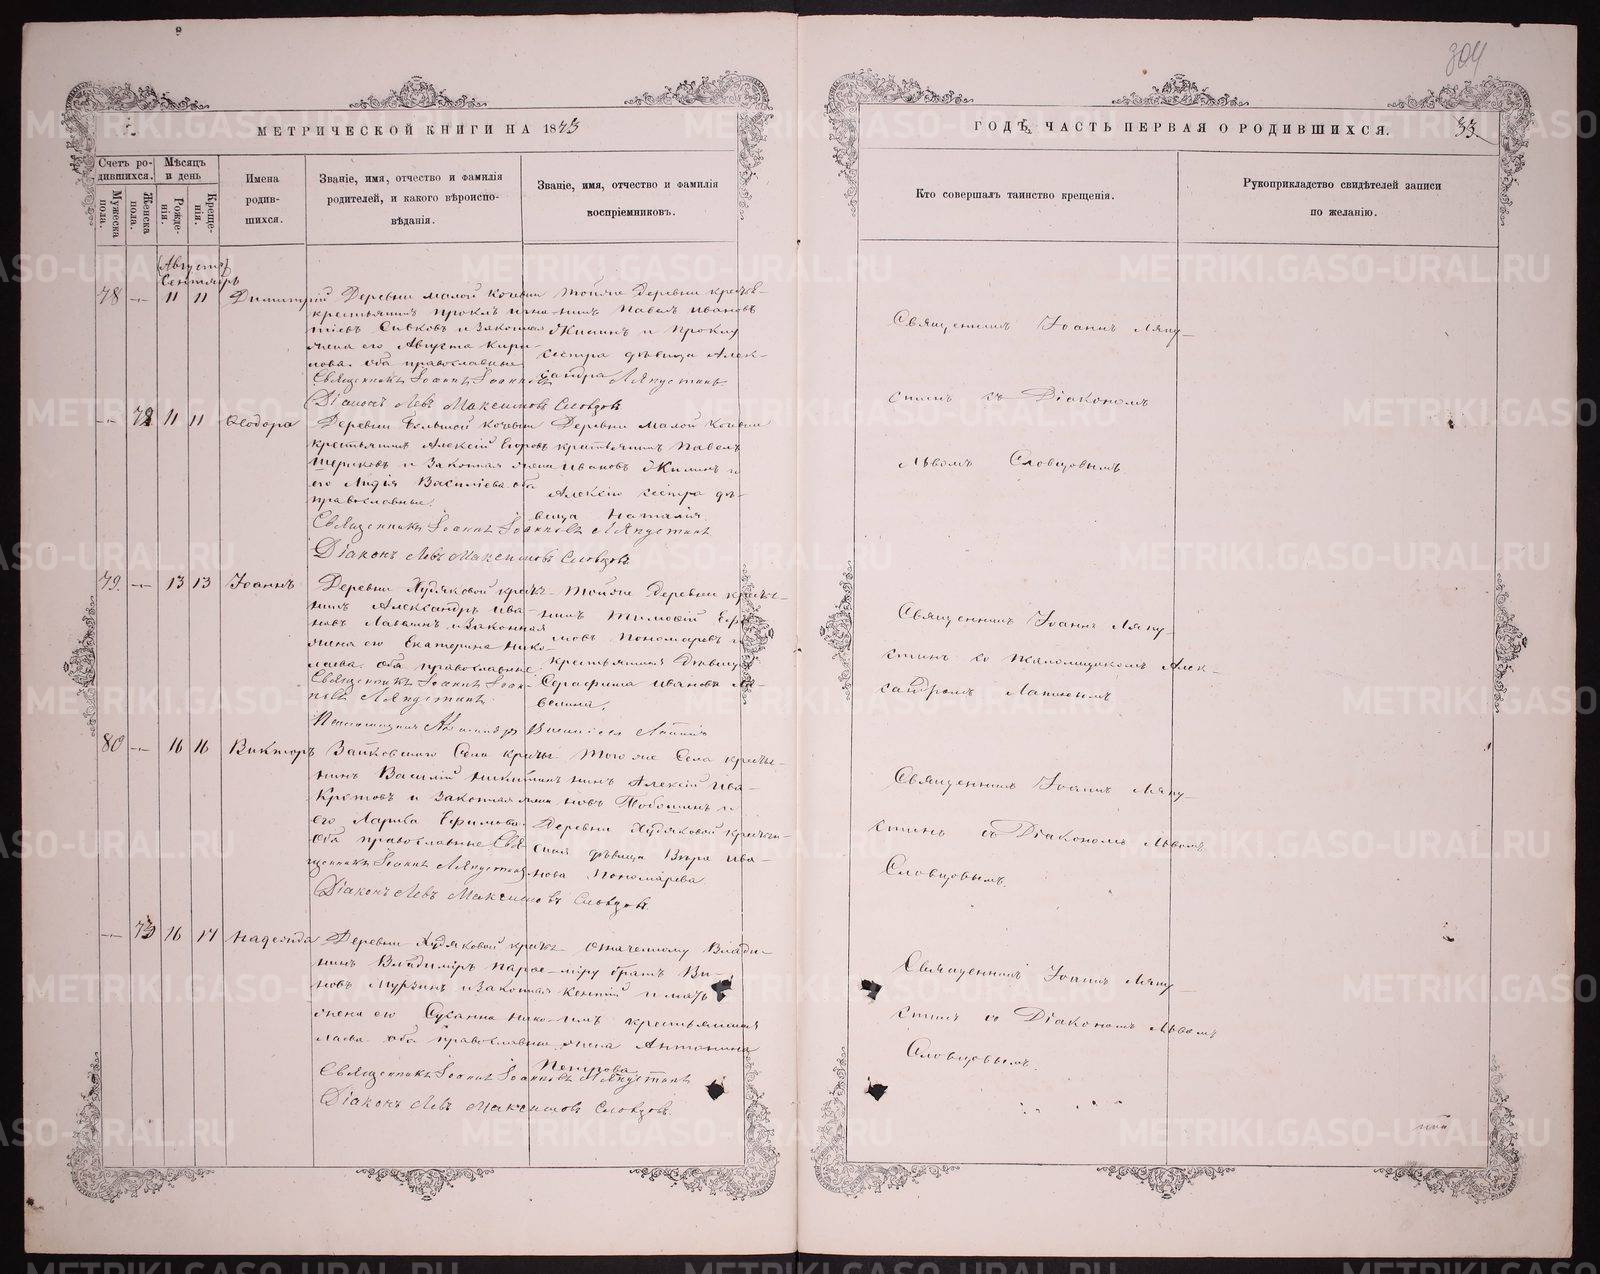 304
МЕТРИЧЕСКОЙ КНИГИ НА 1873
ГОДѢ, ЧАСТЬ ПЕРВАЯ О РОДИВШИХСЯ.
33
Счетъ ро-
дившихся.
Мужеска
пола.
Женска
пола.
Мѣсяцъ
и день
Рожде-
нія.
Креще-
нія.
Имена
родив-
шихся.
Званіе, имя, отчество и фамилія
родителей, и какого вѣроиспо-
вѣданія.
Званіе, имя, отчество и фамилія
воспріемниковъ.
Кто совершалъ таинство крещенія.
Рукоприкладство свидѣтелей записи
по желанію.
(Августъ)
Сентябрь
78 11 11 Димитрій
Деревни малой Кочевки
крестьянинъ Проклъ
Сивковъ и законная
жена его Августа Кири-
лова. Оба православные
Священникъ Іоаннъ Іоанновъ Ляпустинъ
Діаконъ Левъ Максимовъ Словцовъ
Тойже деревни кресть-
нинъ Павелъ Ивановъ
Жилинъ и Проклу
сестра дѣвица Алек-
сандра
Священникъ Іоаннъ Ляпу-
стинъ съ Діакономъ
Львомъ Словцовымъ
72 11 11 Ѳеодора
Деревни большой Кочевки
крестьянинъ Алексій Егоровъ
и законная жена
его Лидія Васильева. оба
православные.
Священникъ Іоаннъ Іоанновъ Ляпустинъ
Діаконъ Левъ Максимовъ Словцовъ
Деревни малой Кочевки
крестьянинъ Павелъ
Ивановъ Жилинъ и
Алексію сестра дѣ-
вица Наталія.
79. 13 13 Іоаннъ
Деревни Худяковой кресть-
нинъ Александръ Ива-
новъ и законная
жена его Екатерина Нико-
лаева. Оба православные.
Священникъ Іоаннъ Іоан-
новъ Ляпустинъ
Тойже деревни кресть-
нинъ Тимоѳій
Пономаревъ и
крестьянская дѣвица
Серафима Иванова
Священникъ Іоаннъ Ляпу-
стинъ со Псаломщикомъ Алек-
сандромъ
80 16 16 Викторъ
Зайковскаго Села кресть-
нинъ Василій Никитинъ
Кротовъ и законная жена
его Ларива Ефимова.
Оба православные Свя-
щенникъ Іоаннъ Ляпустинъ
Діаконъ Левъ Максимовъ Словцовъ.
Того же Села кресть-
нинъ Алексій Ива-
новъ и
Деревни Худяковой крестьян-
ская дѣвица Вѣра Ива-
нова Пономарева
Священникъ Іоаннъ Ляпу-
стинъ съ Діакономъ Львомъ
Словцовымъ.
73 16 17 Надежда
Деревни Худяковой кресть-
нинъ Владиміръ
Мурзинъ и законная
жена его Сусанна Нико-
лаева. Оба православные
Священникъ Іоаннъ Іоанновъ Ляпустинъ
Діаконъ Левъ Максимовъ Словцовъ.
Означенному Влади-
міру братъ Ви-
кентій и мать
ихъ крестьянская
жена Антонина
Петрова
Священникъ Іоаннъ Ляпу-
стинъ со Діакономъ Львомъ
Словцовымъ.